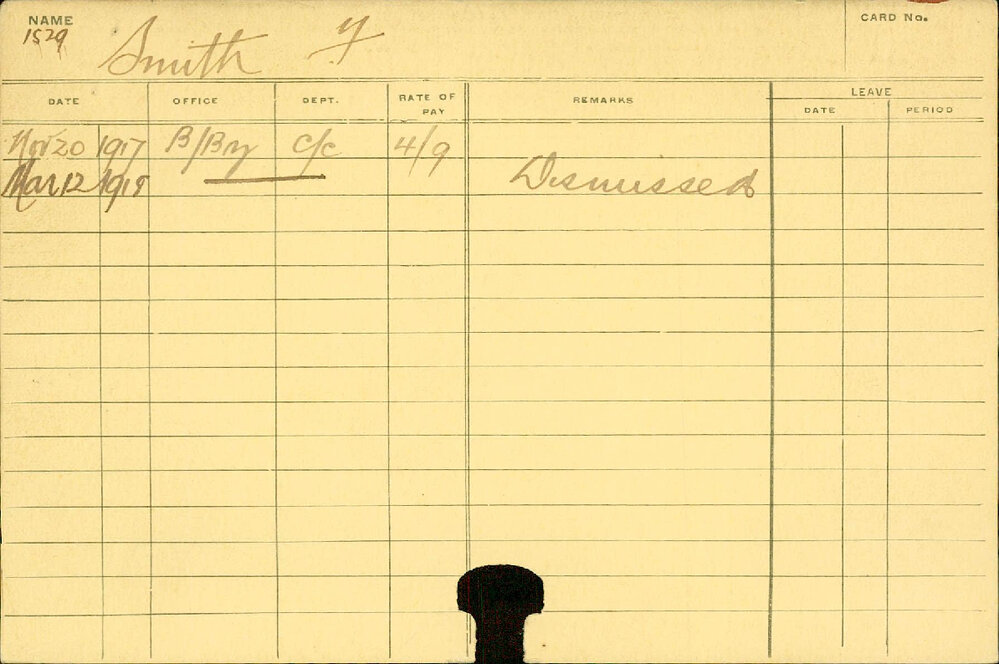 NAME CARD No.
1529 Smith F
DATE OFFICE DEPT. RATE OF PAY REMARKS LEAVE
DATE PERIOD
Nov 20 1917 B/By c/c 4/9
Mar 12 1918 Dismissed